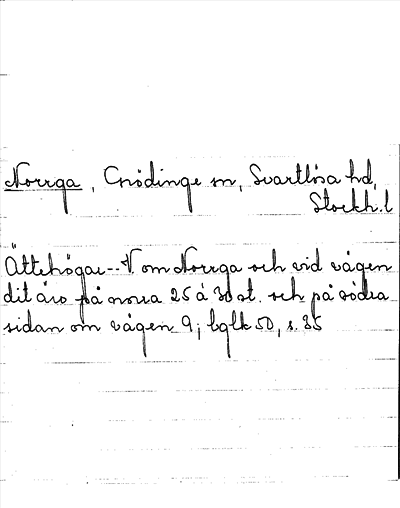 Norrga, Grödinge sn, Svartlösa hd,
Stockh.l
Ättehögar -- V om Norrga och vid vägen
dit äro på norra 25 à 30 st. och på södra
sidan om vägen 9; bglk 50, s. 35